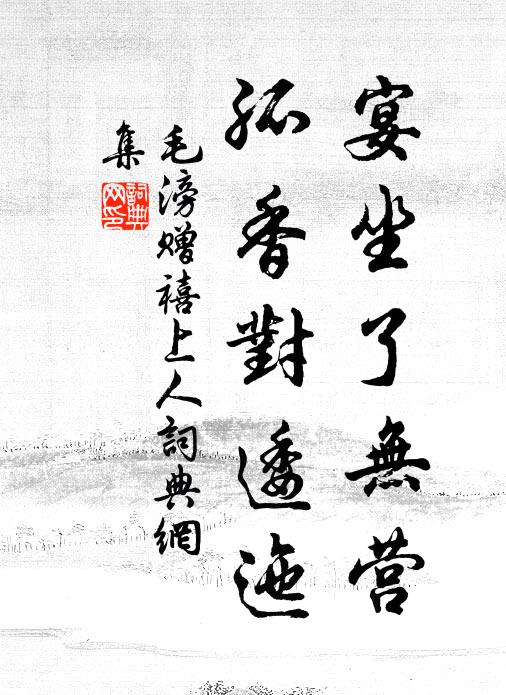 宴坐了無营
孤香對逶迤
毛滂贈禧上人詞典網
集
詞典
网印